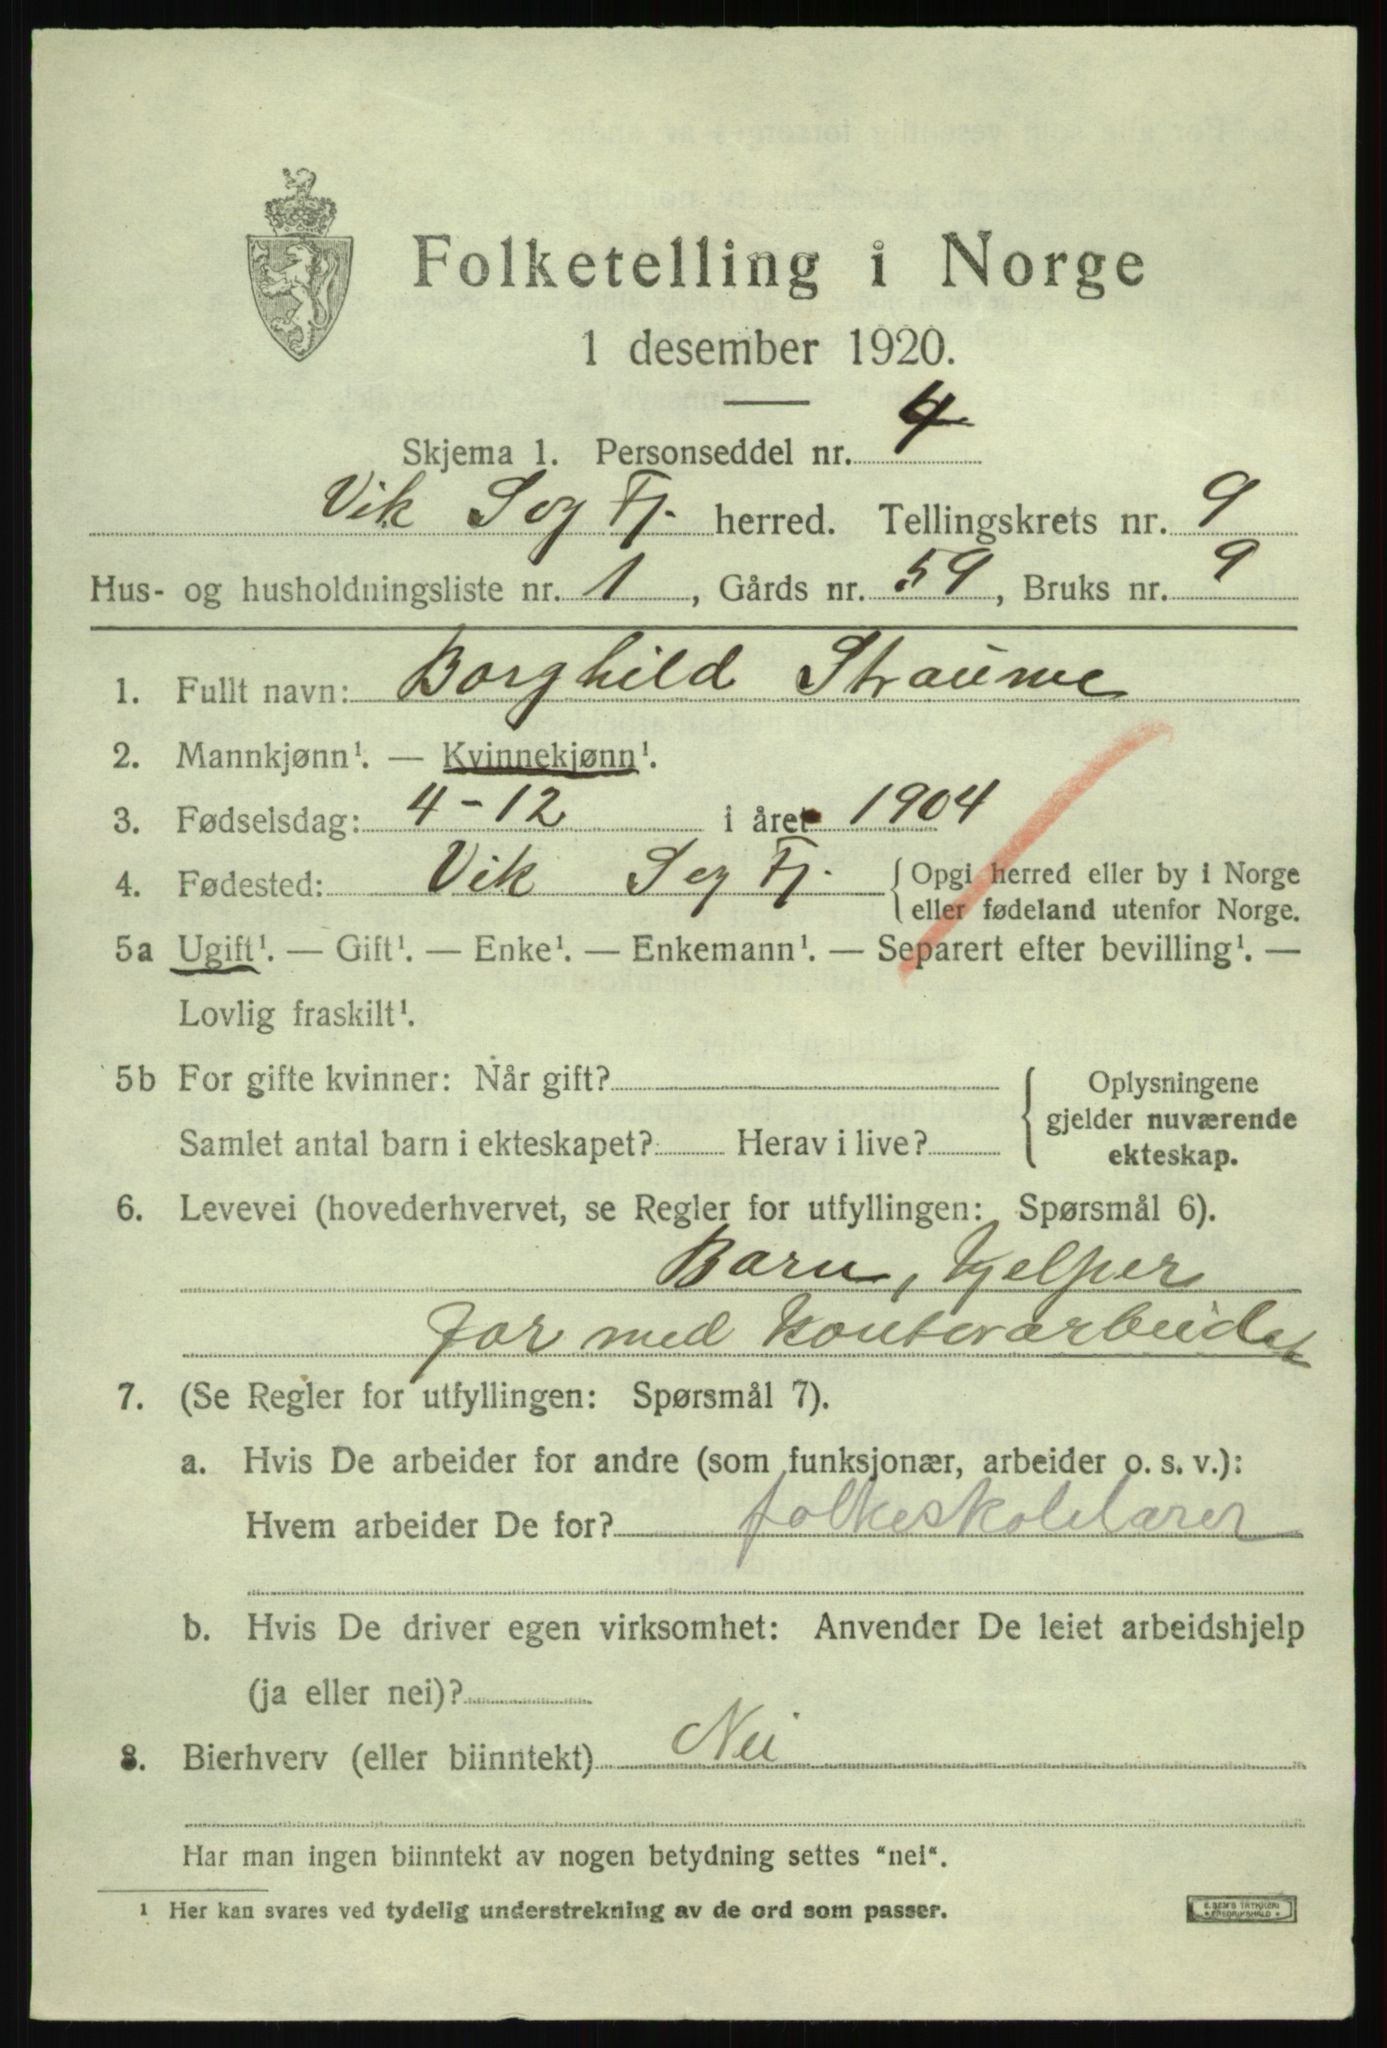 Folketelling i Norge
1 desember 1920.
Skjema 1. Personseddel nr. 4
Vik Sog Fj. herred. Tellingskrets nr. 9
Hus- og husholdningsliste nr. 1, Gårds nr. 59, Bruks nr. 9
1. Fullt navn: Borghild Straume
2. Mannkjønn¹. — Kvinnekjønn¹.
3. Fødselsdag: 4-12 i året 1904
4. Fødested: Vik Sog Fj. { Opgi herred eller by i Norge
eller fødeland utenfor Norge.
5a Ugift¹. — Gift¹. — Enke¹. — Enkemann¹. — Separert efter bevilling¹. —
Lovlig fraskilt¹.
5b For gifte kvinner: Når gift? { Oplysningene
gjelder nuværende
Samlet antal barn i ekteskapet? Herav i live?
ekteskap.
6. Levevei (hovederhvervet, se Regler for utfyllingen: Spørsmål 6).
Barn, hjelper
far med kontorarbeide
7. (Se Regler for utfyllingen: Spørsmål 7).
a. Hvis De arbeider for andre (som funksjonær, arbeider o. s. v.):
Hvem arbeider De for? folkeskolelærer
b. Hvis De driver egen virksomhet: Anvender De leiet arbeidshjelp
(ja eller nei)?
8. Bierhverv (eller biinntekt) Nei
Har man ingen biinntekt av nogen betydning settes "nei".
¹ Her kan svares ved tydelig understrekning av de ord som passer.